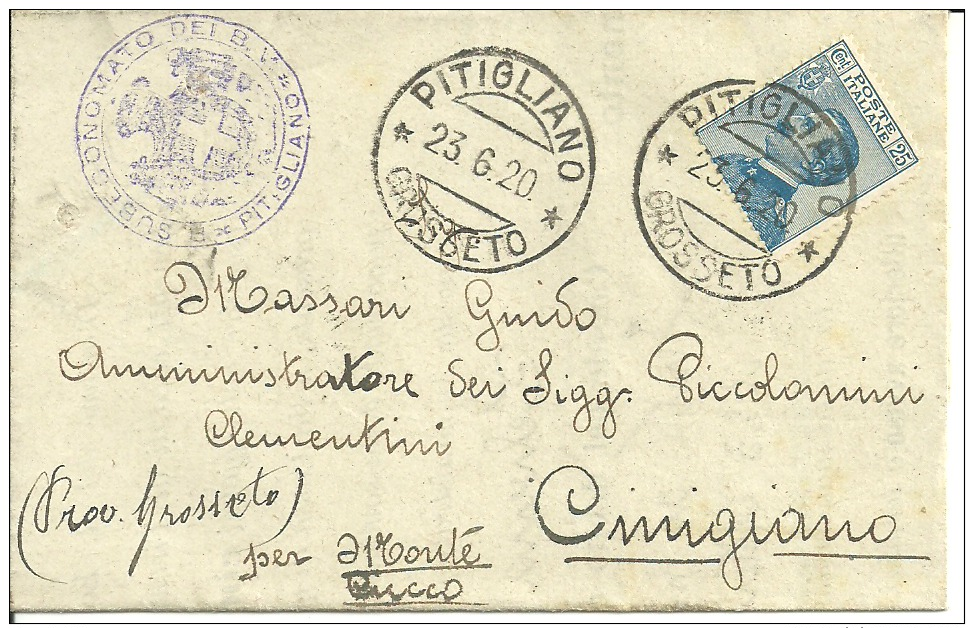 R. SUBECONOMATO DEI B. V. PITIGLIANO
PITIGLIANO
23.6.20
GROSSETO
PITIGLIANO
23.6.20
GROSSETO
Cent.
POSTE
ITALIANE
25
Massari Guido
Amministratore dei Sigg. Piccolomini
Clementini
(Prov. Grosseto)
Cinigiano
per Monte
Cucco